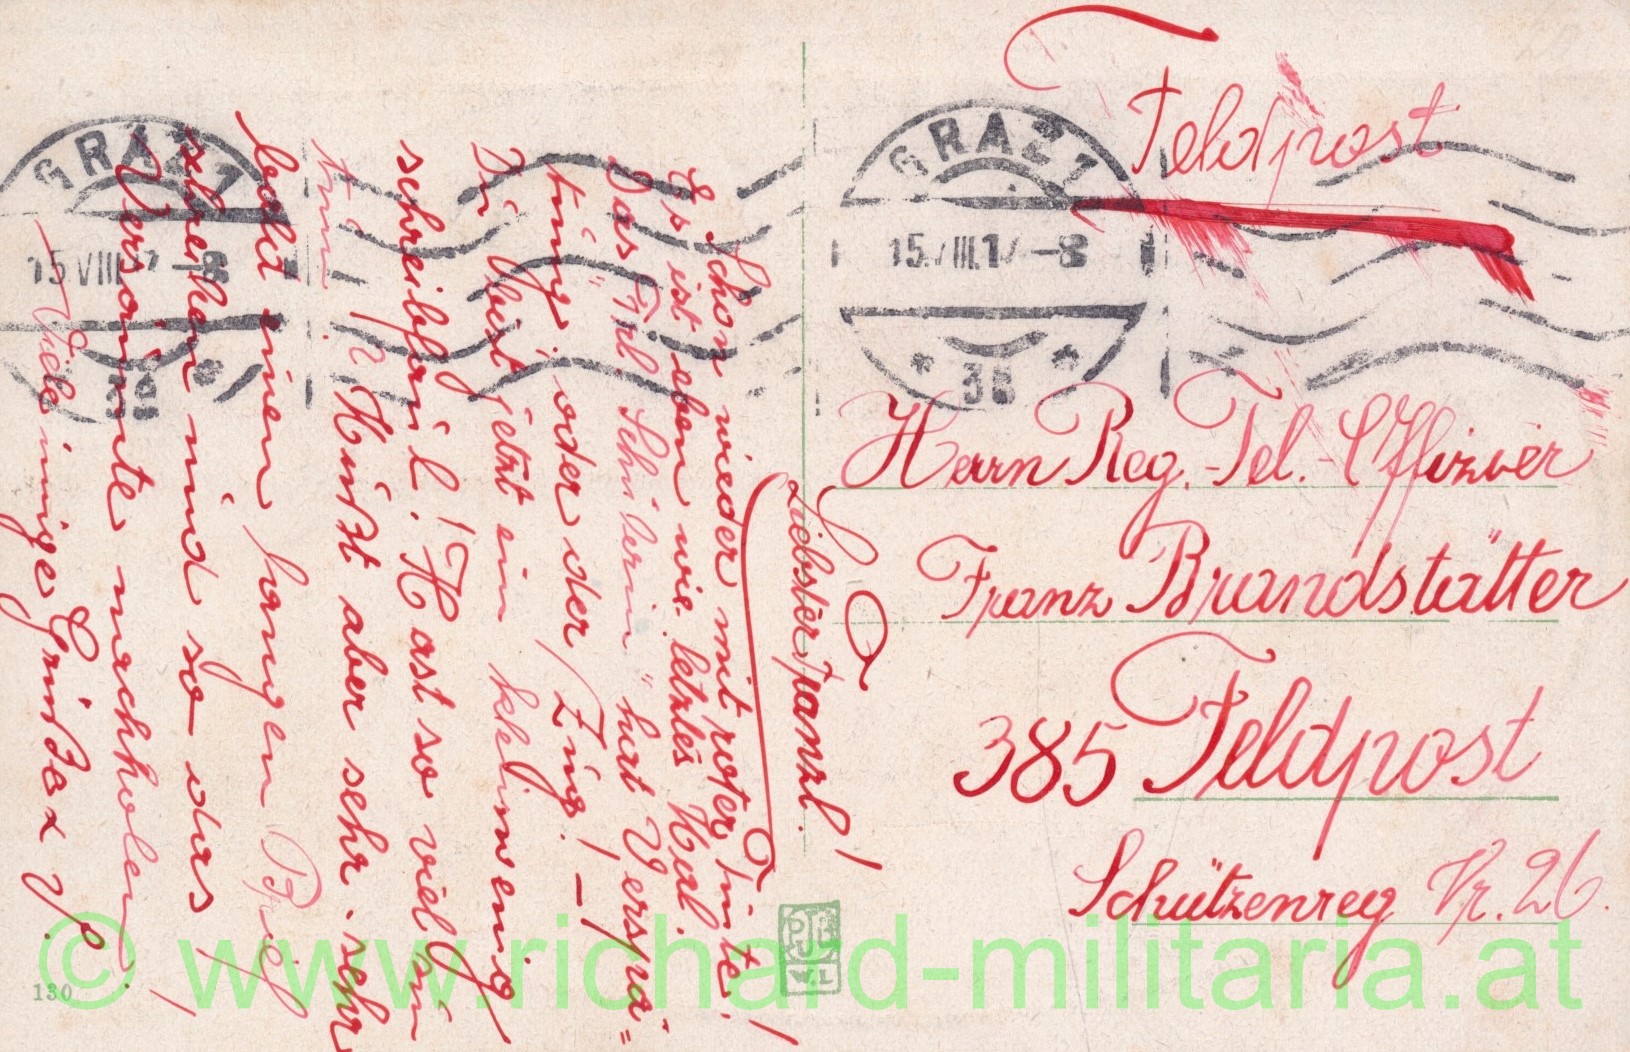 Feldpost
GRAZ 1
15.VIII.17-8
Herrn Reg.-Tel.-Offizier
Franz Brandstätter
385 Feldpost
Schützenreg Nr. 26.
GRAZ 1
15 VIII 17-8
Liebster Franzl!
Schon wieder mit roter Tinte!
Es ist eben wie letztes Mal.
Das Frl. „Schülerin" hat Verspä=
tung: oder der Zug! –
Du jetzt ein wenig
schreibfaul! Hast so viel zu
tun? Mußt aber sehr, sehr
bald einen langen Brief
schreiben und so das
Versäumte nachholen!
Viele innige Grüße
130
W.L
© www.richard-militaria.at